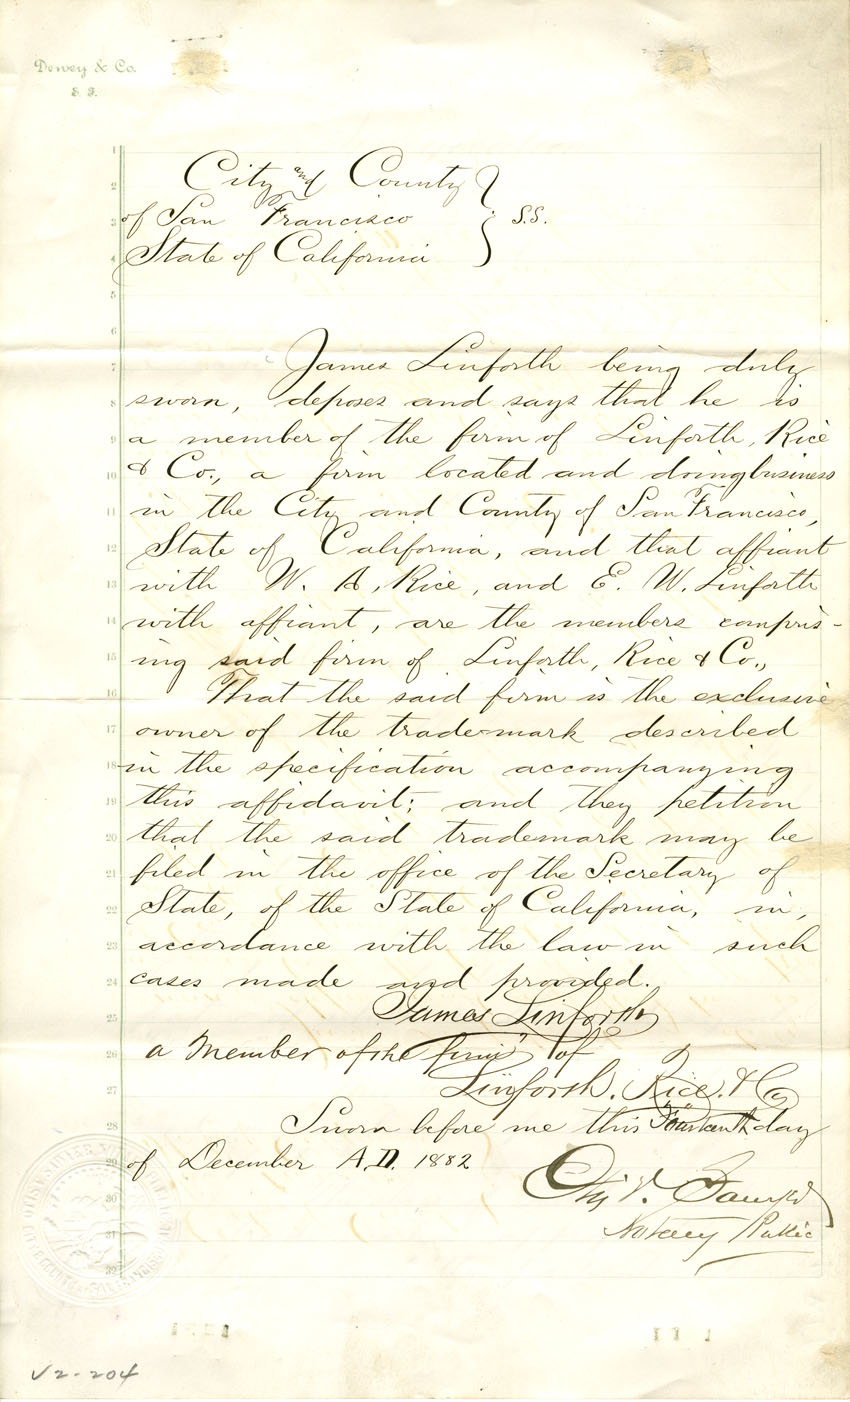 Dewey & Co.
S. F.
City and County
of San Francisco
State of California
S.S.
James Linforth being duly
sworn, deposes and says that he is
a member of the firm of Linforth, Rice
& Co., a firm located and doing business
in the City and County of San Francisco,
State of California, and that affiant
with W. A, Rice, and E. W. Linforth
with affiant, are the members compris-
ing said firm of Linforth, Rice & Co.,
That the said firm is the exclusive
owner of the trade-mark described
in the specification accompanying
this affidavit; and they petition
that the said trademark may be
filed in the office of the Secretary of
State, of the State of California, in,
accordance with the law in such
cases made and provided.
James Linforth
a Member of the firm of
Linforth. Rice. & Co
Sworn before me this Fourteenth day
of December A.D. 1882
Notary Public
V2-204
1
2
3
4
5
6
7
8
9
10
11
12
13
14
15
16
17
18
19
20
21
22
23
24
25
26
27
28
29
30
31
32